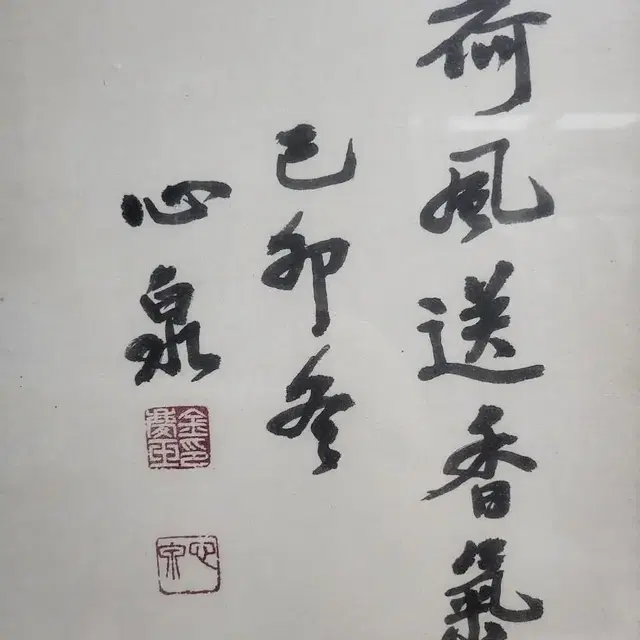 荷風送香氣
己卯冬
心泉
心泉